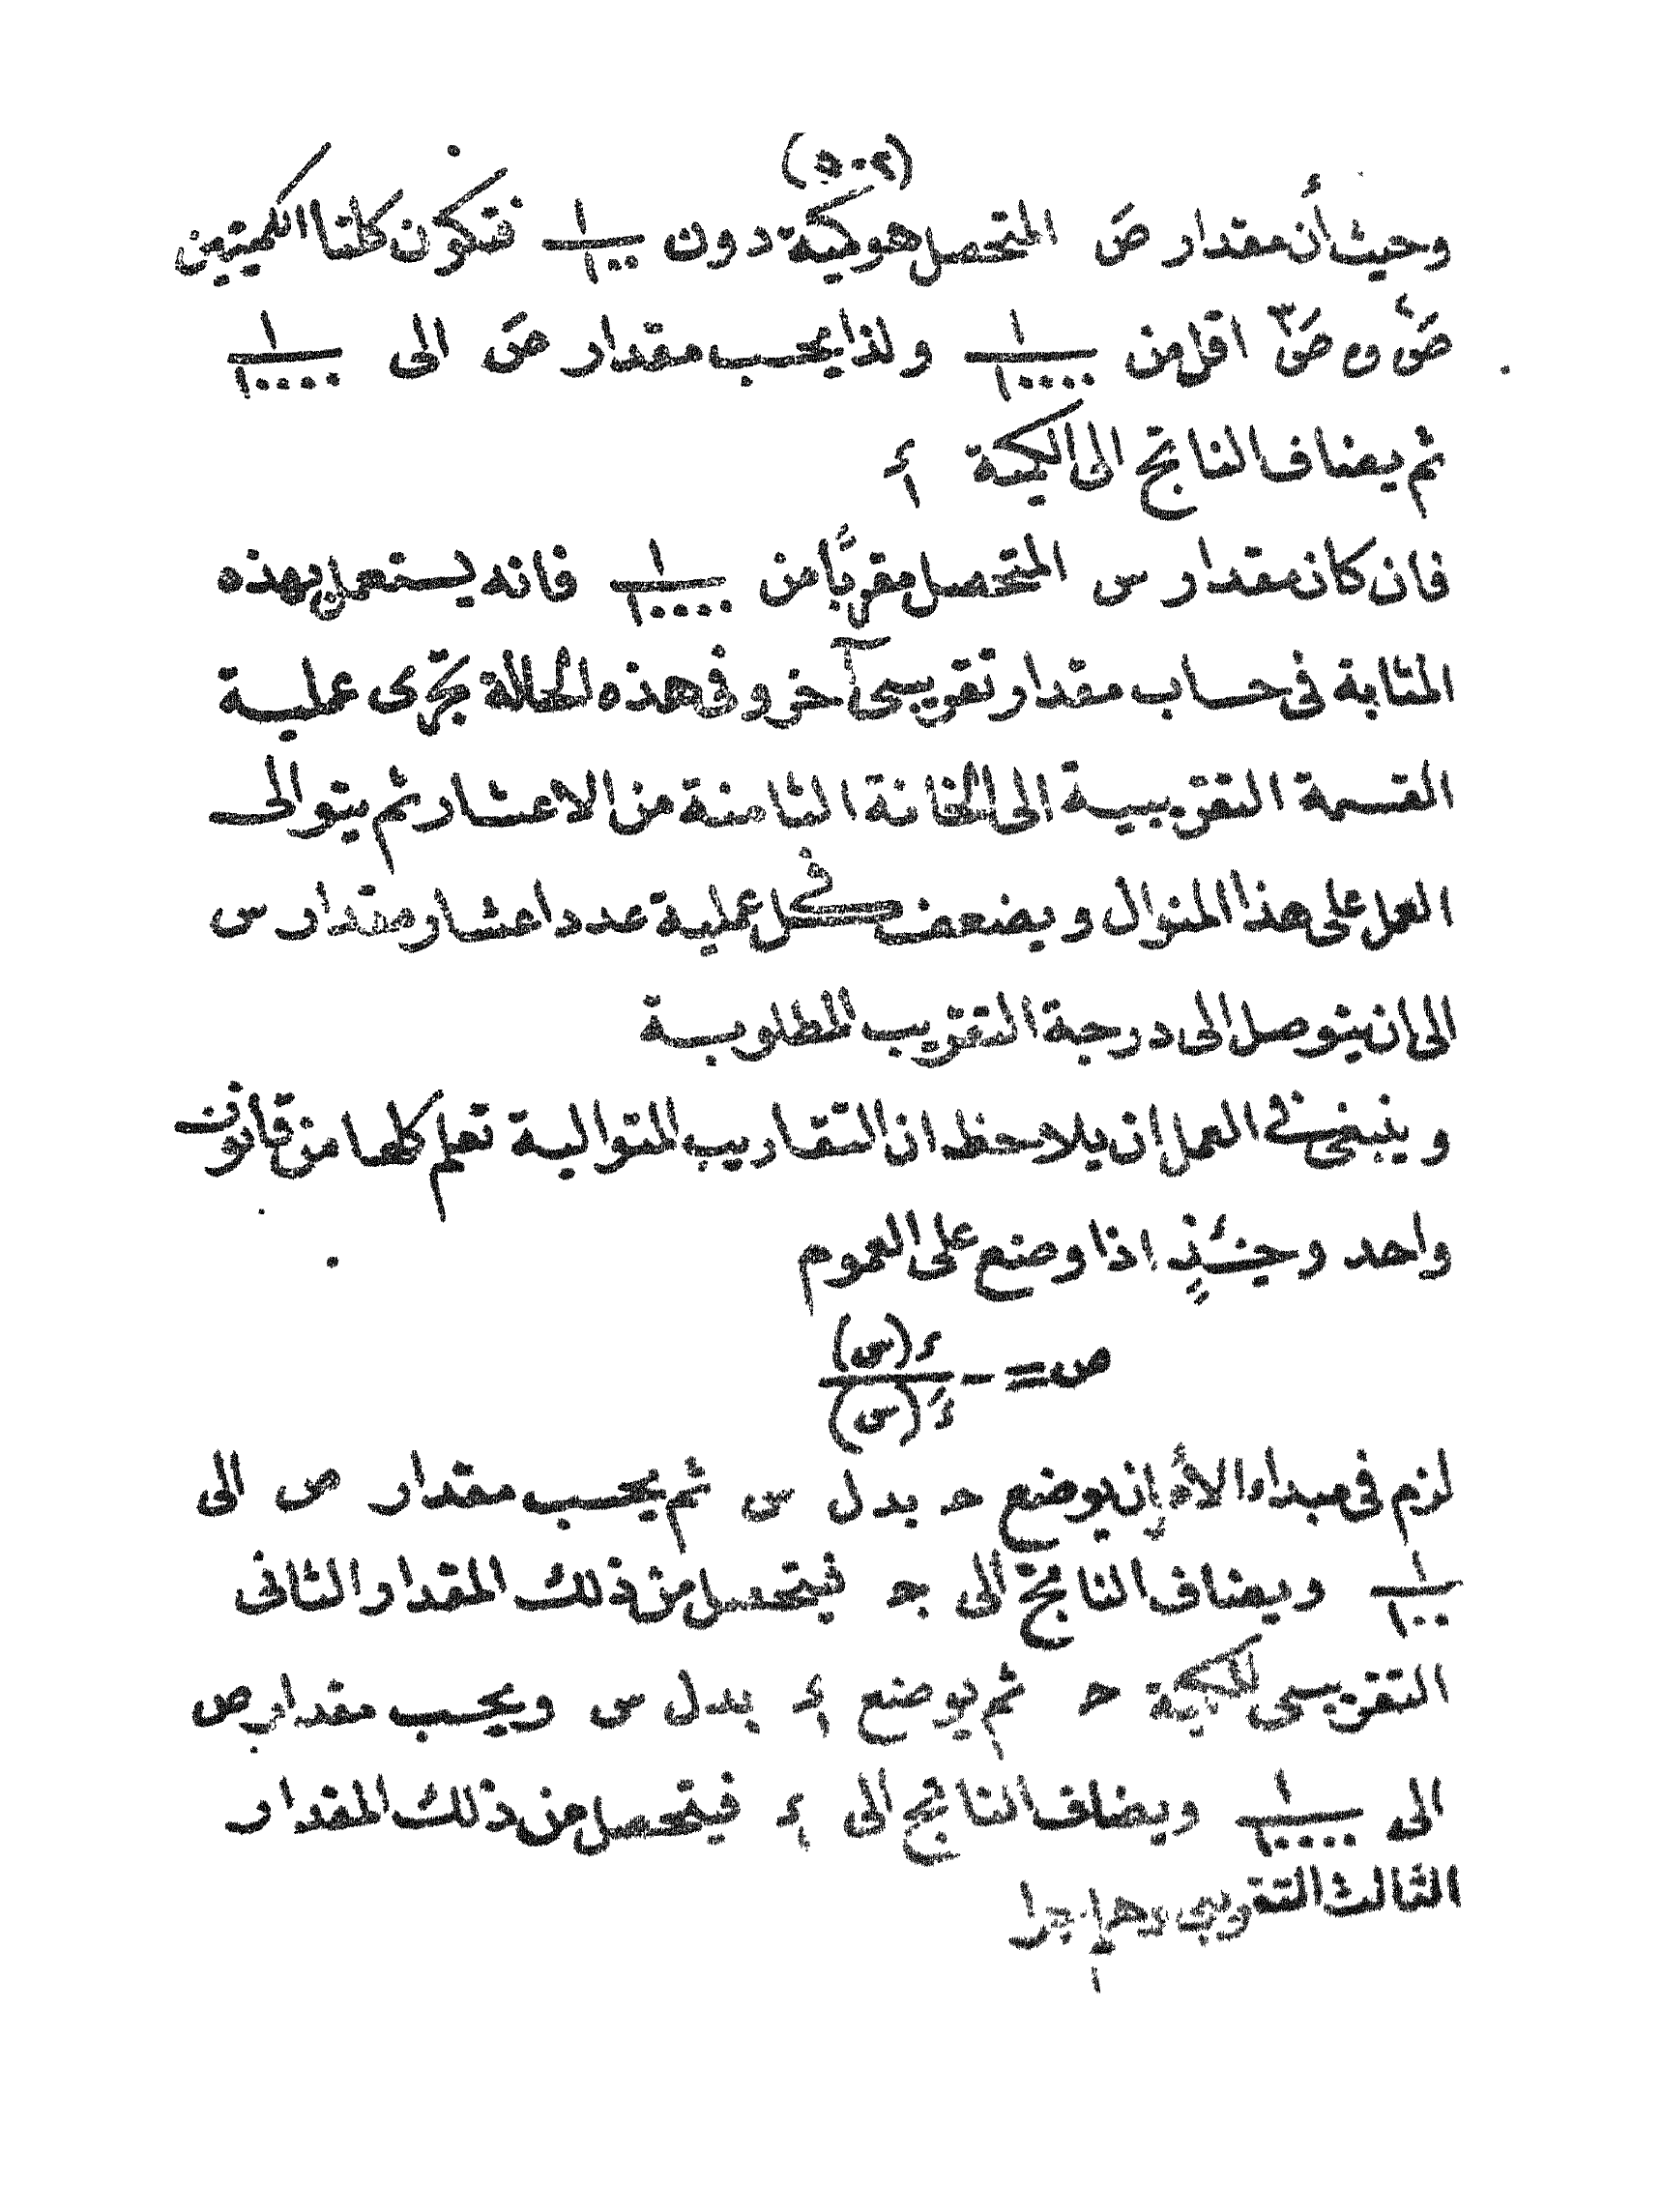 (٥٠٢)
وحيث أن مقدار صَ المتحصل هو كمية دون ١/١٠٠ فتكون كلتا الكميتين
صَ٢ و صَ٣ اقل من ١/١٠٠٠٠ ولذا يحسب مقدار صَ الى ١/١٠٠٠٠
ثم يضاف الناتج الى الكمية
فان كان مقدار س المتحصل مقربًا من ١/١٠٠٠٠ فانه يستعمل بهذه
المثابة فى حساب مقدار تقريبى آخر وفى هذه الحالة تجرى عملية
القسمة التقريبية الى الخانة الثامنة من الاعشار ثم يتوالى
العمل على هذا المنوال ويضعف فى كل عملية عدد اعشار مقدار س
الى ان يتوصل الى درجة التقريب المطلوبة
وينبغى فى العمل ان يلاحظ ان التقاريب المتوالية تعلم كلها من قانون
واحد وحينئذٍ اذا وضع على العموم
ص = - د(س)/دَ(س)
لزم فى مبداء الأمر ان يوضع حـ بدل س ثم يحسب مقدار ص الى
١/١٠٠ ويضاف الناتج الى حـ فيتحصل من ذلك المقدار الثانى
التقريبى للكمية حـ ثم يوضع بدل س ويحسب مقدار ص
الى ١/١٠٠٠٠ ويضاف الناتج الى فيتحصل من ذلك المقدار
الثالث التقريبى وهلم جرا